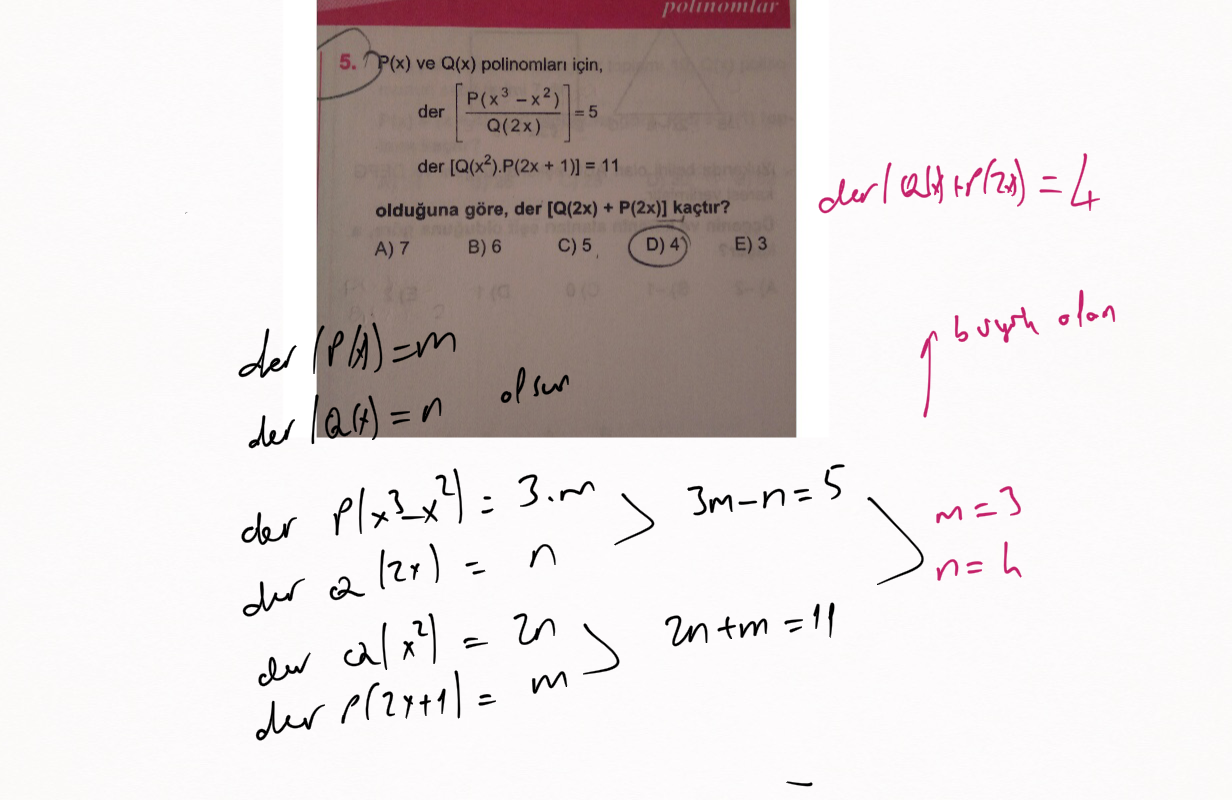 polinomlar
5. P(x) ve Q(x) polinomları için,
der [P(x³ – x²) / Q(2x)] = 5
der [Q(x²).P(2x + 1)] = 11
olduğuna göre, der [Q(2x) + P(2x)] kaçtır?
A) 7 B) 6 C) 5 D) 4 E) 3
der(Q(x)+P(2x)) = 4
büyük olan
der(P(x)) = m
der(Q(x)) = n olsun
der P(x³-x²) = 3.m
3m-n=5
der Q(2x) = n
m=3
n=4
der Q(x²) = 2n
2n+m=11
der P(2x+1) = m